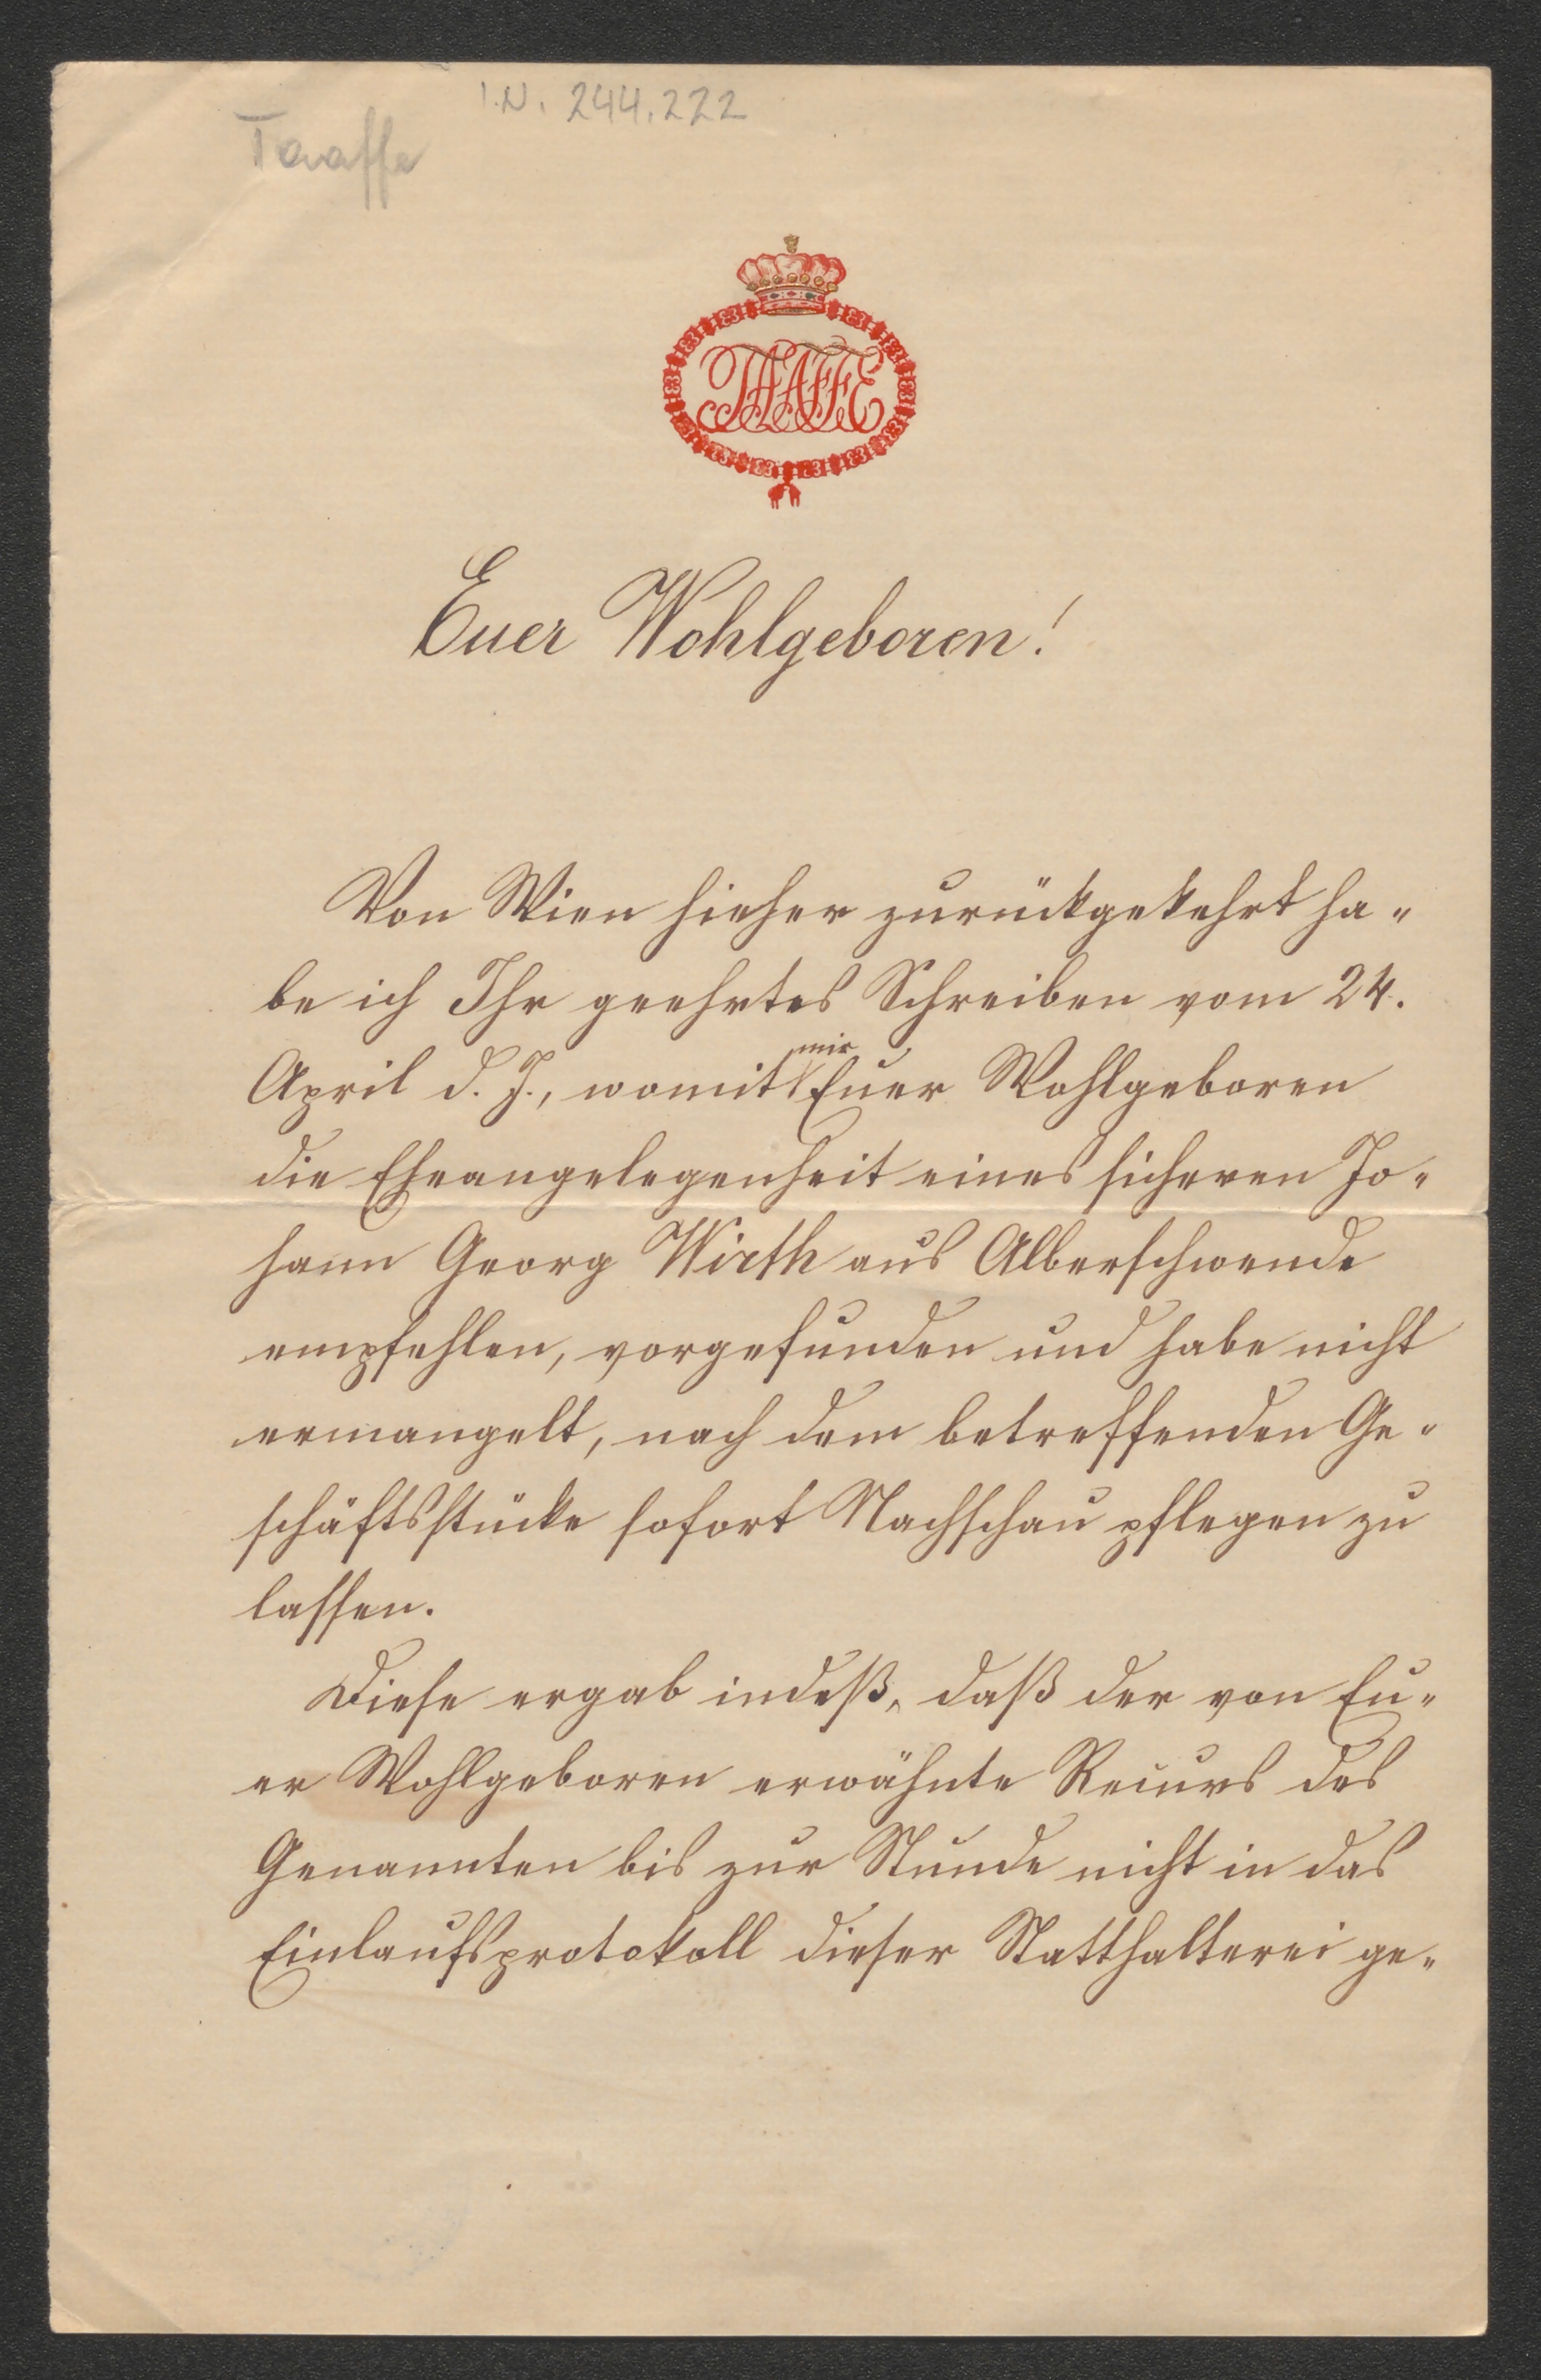 I.N. 244.222
Taaffe
TAAFFE
Euer Wohlgeboren!
Von Wien hieher zurückgekehrt ha-
be ich Ihr geehrtes Schreiben vom 24.
April d. J., womit mir Euer Wohlgeboren
die Eheangelegenheit eines sicheren Jo-
hann Georg Wirth aus Alberschwende
empfehlen, vorgefunden und habe nicht
ermangelt, nach dem betreffenden Ge-
schäftsstücke sofort Nachschau pflegen zu
lassen.
Diese ergab indeß, daß der von Eu-
er Wohlgeboren erwähnte Recurs des
Genannten bis zur Stunde nicht in das
Einlaufsprotokoll dieser Statthalterei ge-